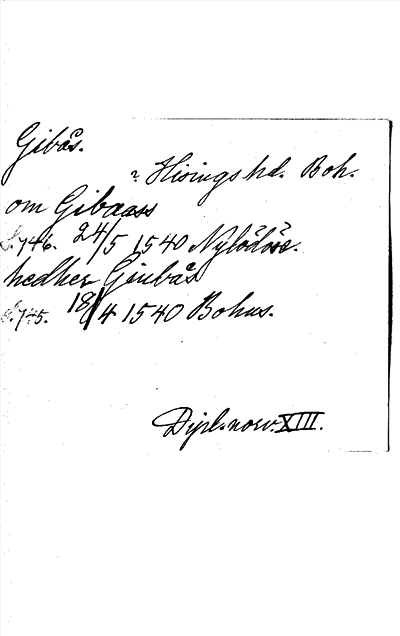 Gibås.
? Hisings hd. Boh.
om Gibaass
S. 746. 24/5 1540 Nylödöse.
hedher Genbås
S. 745. 18/4 1540 Bohus.
Dipl. norv. XIII.